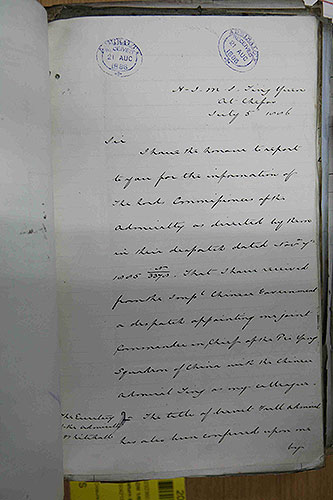 ADMIRALTY
RECEIVED
21 AUG
1886
ADMIRALTY
RECEIVED
21 AUG
1886
H.I.M.S. Ting Yuen
At Chefoo
July 5th 1886
Sir
I have the honour to report
to you for the information of
the Lords Commissioners of the
Admiralty as directed by them
in their despatch dated Nov
1885. That I have received
from the Impl Chinese Government
a despatch appointing me joint
Commander in Chief of the Pei Yang
Squadron of China with the Chinese
Admiral Ting as my colleague.
2 - The title of Vice Admiral
has also been conferred upon me
by
The Secretary
to the Admiralty
Whitehall